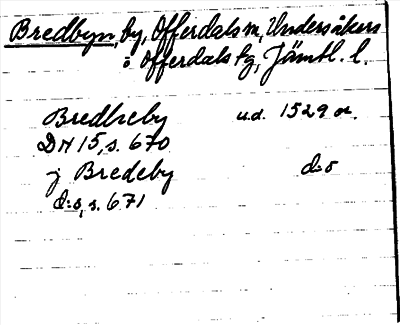 Bredbyn, by, Offerdals sn, Undersåkers
o Offerdals tg, Jämtl. l.
Bredbreby u.d. 1529 or.
DN 15, s. 670
j Bredeby d:o
d:o, s. 671